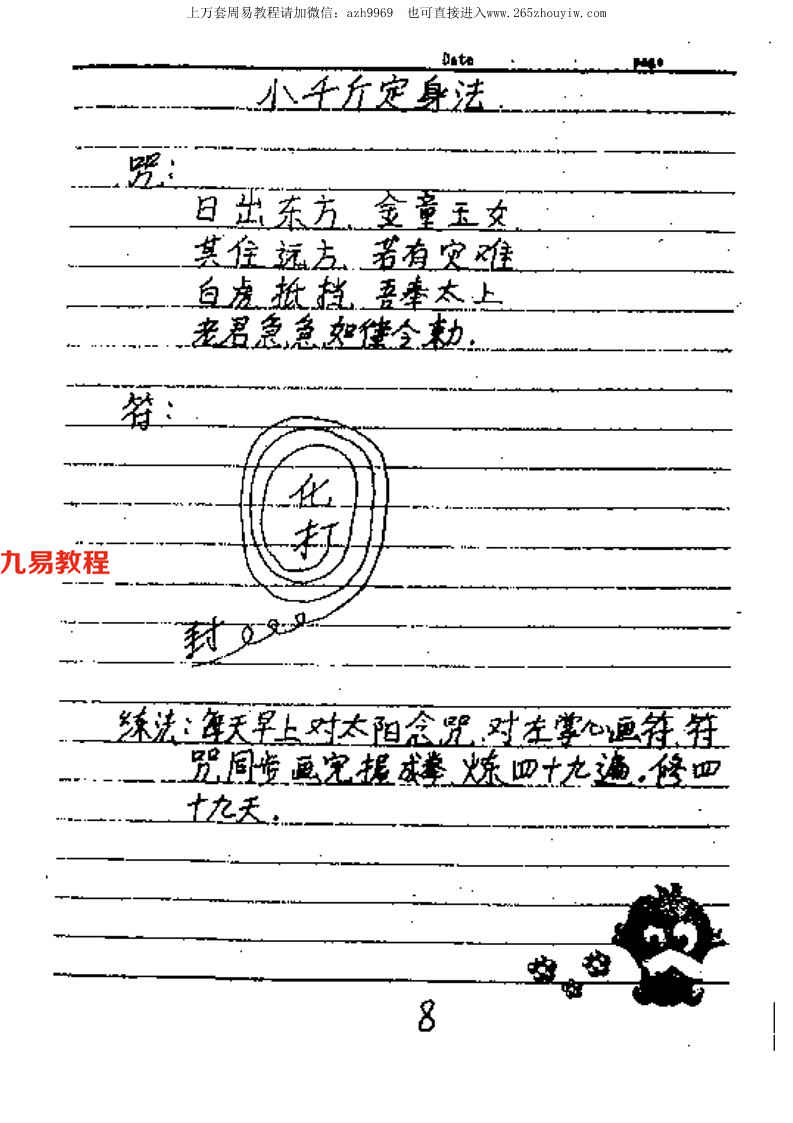 上万套周易教程请加微信：azh9969 也可直接进入www.265zhouyiw.com
Date page
小千斤定身法
咒：
日出东方、金童玉女
其住远方、若有灾难
白虎抵挡、吾奉太上
老君急急如律令勅.
符：
化
打
九易教程
封
练法：每天早上对太阳念咒、对左掌心画符、符
咒同步画完握成拳、炼四十九遍。修四
十九天.
8